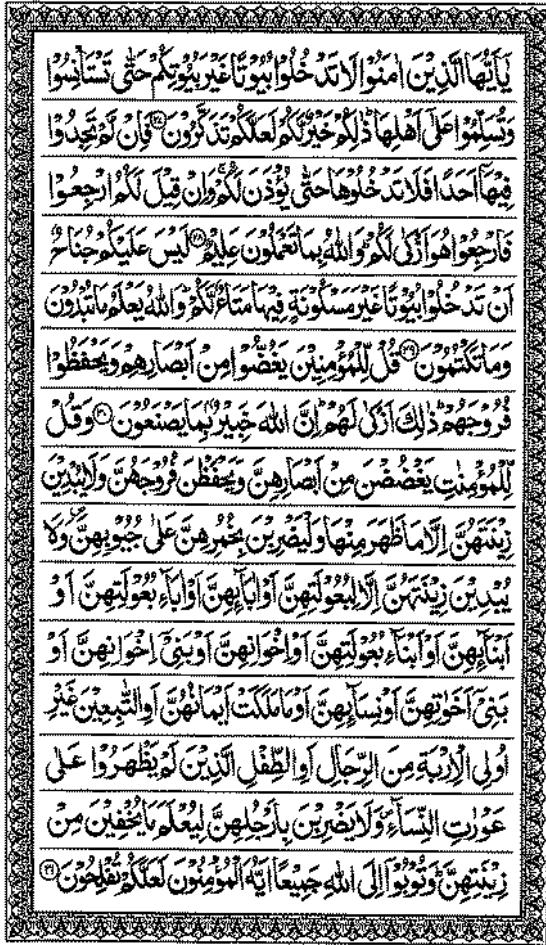 يٰۤاَيُّهَا الَّذِيْنَ اٰمَنُوْا لَا تَدْخُلُوْا بُيُوْتًا غَيْرَ بُيُوْتِكُمْ حَتّٰى تَسْتَاْنِسُوْا
وَتُسَلِّمُوْا عَلٰۤى اَهْلِهَا ؕ ذٰلِكُمْ خَيْرٌ لَّكُمْ لَعَلَّكُمْ تَذَكَّرُوْنَ ۲۷ فَاِنْ لَّمْ تَجِدُوْا
فِيْهَاۤ اَحَدًا فَلَا تَدْخُلُوْهَا حَتّٰى يُؤْذَنَ لَكُمْ ۚ وَاِنْ قِيْلَ لَكُمُ ارْجِعُوْا
فَارْجِعُوْا هُوَ اَزْكٰى لَكُمْ ؕ وَاللّٰهُ بِمَا تَعْمَلُوْنَ عَلِيْمٌ ۲۸ لَيْسَ عَلَيْكُمْ جُنَاحٌ
اَنْ تَدْخُلُوْا بُيُوْتًا غَيْرَ مَسْكُوْنَةٍ فِيْهَا مَتَاعٌ لَّكُمْ ؕ وَاللّٰهُ يَعْلَمُ مَا تُبْدُوْنَ
وَمَا تَكْتُمُوْنَ ۲۹ قُلْ لِّلْمُؤْمِنِيْنَ يَغُضُّوْا مِنْ اَبْصَارِهِمْ وَيَحْفَظُوْا
فُرُوْجَهُمْ ؕ ذٰلِكَ اَزْكٰى لَهُمْ ؕ اِنَّ اللّٰهَ خَبِيْرٌۢ بِمَا يَصْنَعُوْنَ ۳۰ وَقُلْ
لِّلْمُؤْمِنٰتِ يَغْضُضْنَ مِنْ اَبْصَارِهِنَّ وَيَحْفَظْنَ فُرُوْجَهُنَّ وَلَا يُبْدِيْنَ
زِيْنَتَهُنَّ اِلَّا مَا ظَهَرَ مِنْهَا وَلْيَضْرِبْنَ بِخُمُرِهِنَّ عَلٰى جُيُوْبِهِنَّ ۪ وَلَا
يُبْدِيْنَ زِيْنَتَهُنَّ اِلَّا لِبُعُوْلَتِهِنَّ اَوْ اٰبَآئِهِنَّ اَوْ اٰبَآءِ بُعُوْلَتِهِنَّ اَوْ
اَبْنَآئِهِنَّ اَوْ اَبْنَآءِ بُعُوْلَتِهِنَّ اَوْ اِخْوَانِهِنَّ اَوْ بَنِيْۤ اِخْوَانِهِنَّ اَوْ
بَنِيْۤ اَخَوٰتِهِنَّ اَوْ نِسَآئِهِنَّ اَوْ مَا مَلَكَتْ اَيْمَانُهُنَّ اَوِ التّٰبِعِيْنَ غَيْرِ
اُولِى الْاِرْبَةِ مِنَ الرِّجَالِ اَوِ الطِّفْلِ الَّذِيْنَ لَمْ يَظْهَرُوْا عَلٰى
عَوْرٰتِ النِّسَآءِ ۪ وَلَا يَضْرِبْنَ بِاَرْجُلِهِنَّ لِيُعْلَمَ مَا يُخْفِيْنَ مِنْ
زِيْنَتِهِنَّ ؕ وَتُوْبُوْۤا اِلَى اللّٰهِ جَمِيْعًا اَيُّهَ الْمُؤْمِنُوْنَ لَعَلَّكُمْ تُفْلِحُوْنَ ۳۱